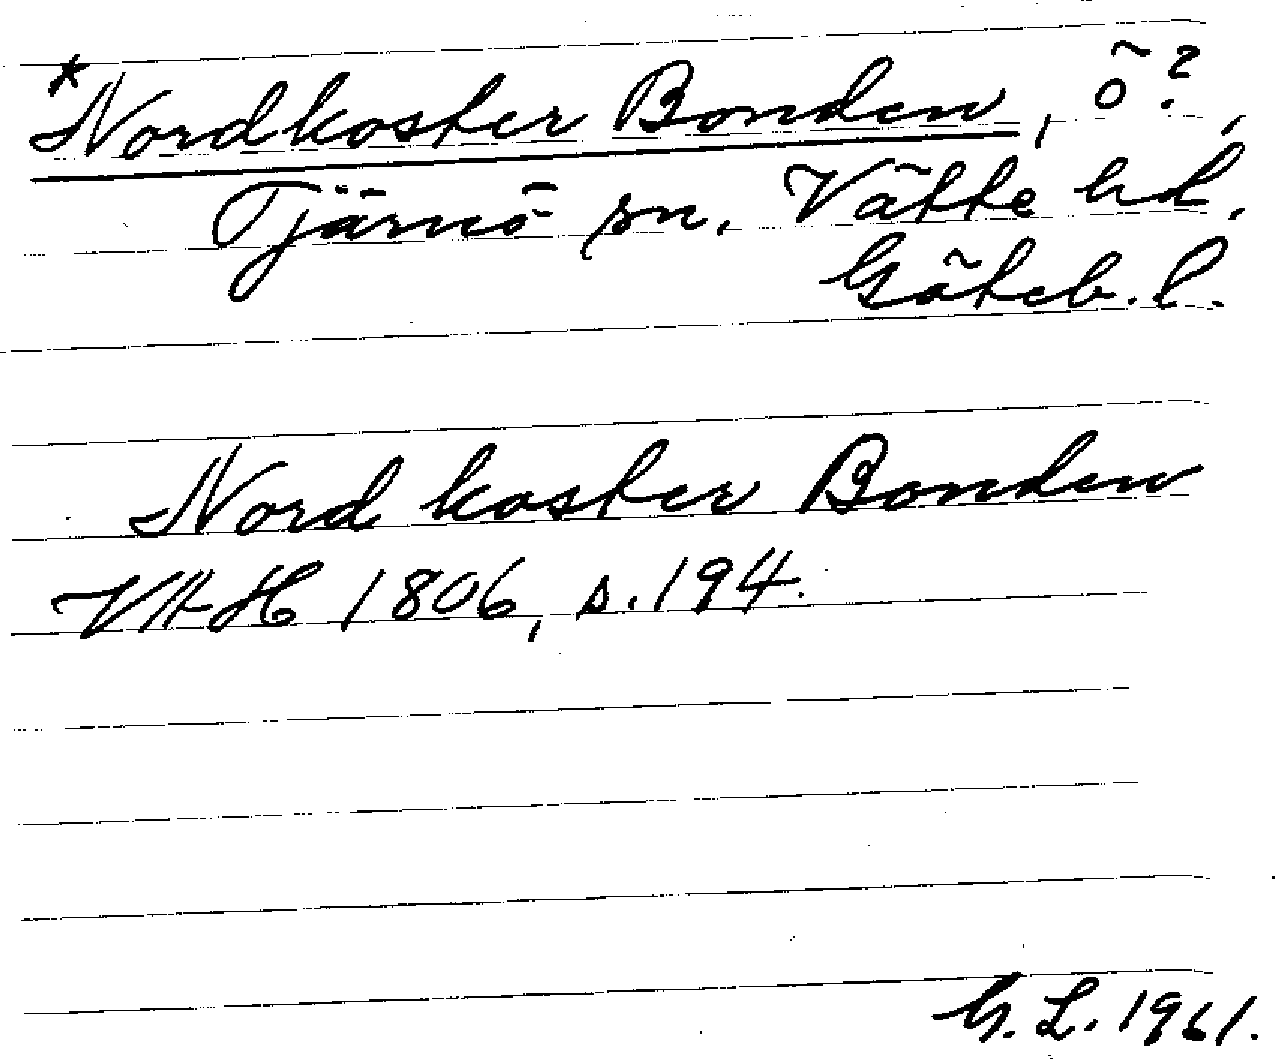 *Nordkoster Bonden, ö?,
Tjärnö sn. Vätte hd.
Göteb. l.
Nord koster Bonden
VAH 1806, s. 194.
G. L. 1961.